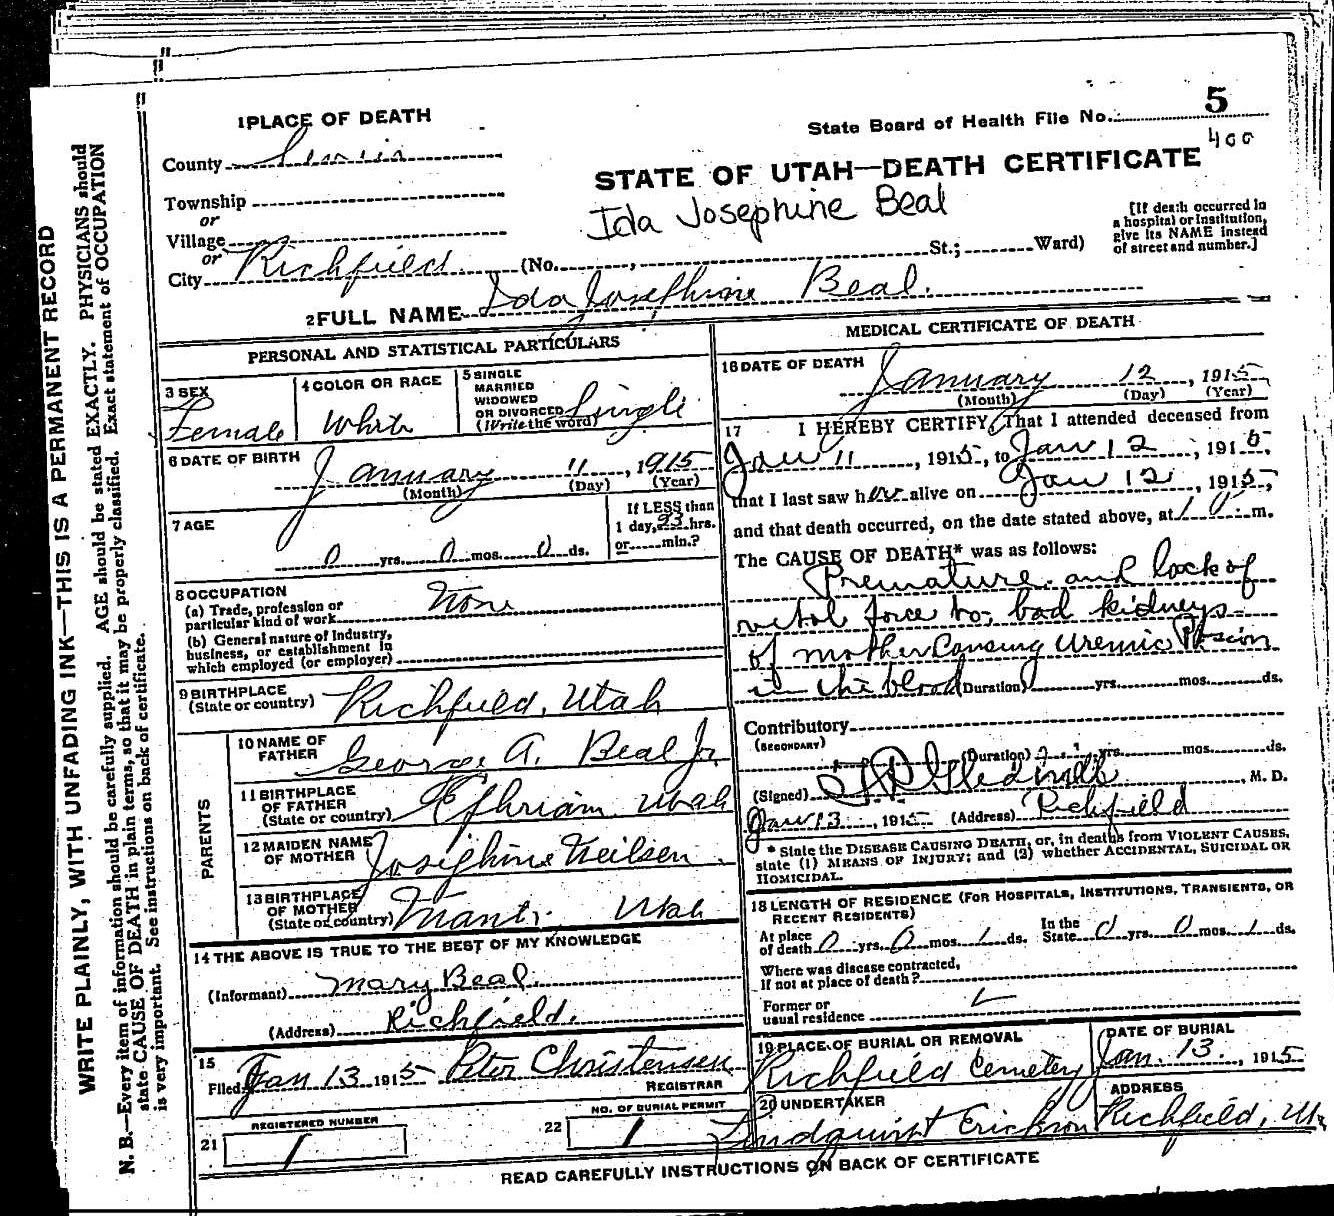 1 PLACE OF DEATH
State Board of Health File No. 5
400
County Sevier
STATE OF UTAH—DEATH CERTIFICATE
Ida Josephine Beal
Township
or
Village
or
City Richfield (No. , St.; Ward)
[If death occurred in
a hospital or institution,
give its NAME instead
of street and number.]
2 FULL NAME Ida Josephine Beal.
PERSONAL AND STATISTICAL PARTICULARS
3 SEX Female
4 COLOR OR RACE White
5 SINGLE
MARRIED
WIDOWED
OR DIVORCED
(Write the word) Single
6 DATE OF BIRTH January 11, 1915
(Month) (Day) (Year)
7 AGE
0 yrs. 0 mos. 0 ds.
If LESS than
1 day, 23 hrs.
or min.?
8 OCCUPATION
(a) Trade, profession or
particular kind of work None
(b) General nature of Industry,
business, or establishment in
which employed (or employer)
9 BIRTHPLACE
(State or country) Richfield, Utah
PARENTS
10 NAME OF
FATHER George A. Beal Jr
11 BIRTHPLACE
OF FATHER
(State or country) Ephriam Utah
12 MAIDEN NAME
OF MOTHER Josephine Neilsen.
13 BIRTHPLACE
OF MOTHER
(State or country) Manti, Utah
14 THE ABOVE IS TRUE TO THE BEST OF MY KNOWLEDGE
(Informant) Mary Beal.
(Address) Richfield.
15
Filed Jan 13 1915 Peter Christensen
REGISTRAR
21 REGISTERED NUMBER
1
22 NO. OF BURIAL PERMIT
1
MEDICAL CERTIFICATE OF DEATH
16 DATE OF DEATH
January 12, 1915
(Month) (Day) (Year)
17 I HEREBY CERTIFY, That I attended deceased from
Jan 11, 1915, to Jan 12, 1915,
that I last saw her alive on Jan 12, 1915,
and that death occurred, on the date stated above, at m.
The CAUSE OF DEATH* was as follows:
Premature and lack of
vital force to bad kidneys
of mother Causing Uremic Posion
in the blood (Duration) yrs. mos. ds.
Contributory
(SECONDARY)
(Duration) yrs. mos. ds.
(Signed) M. D.
Jan 13, 1915 (Address) Richfield
* State the DISEASE CAUSING DEATH, or, in deaths from VIOLENT CAUSES,
state (1) MEANS OF INJURY; and (2) whether ACCIDENTAL, SUICIDAL OR
HOMICIDAL.
18 LENGTH OF RESIDENCE (FOR HOSPITALS, INSTITUTIONS, TRANSIENTS, OR
RECENT RESIDENTS)
At place
of death 0 yrs. 0 mos. 1 ds.
In the
State 0 yrs. 0 mos. 1 ds.
Where was disease contracted,
if not at place of death?
Former or
usual residence
19 PLACE OF BURIAL OR REMOVAL
Richfield Cemetery
DATE OF BURIAL
Jan. 13, 1915
20 UNDERTAKER
Lindquist Erickson
ADDRESS
Richfield, Ut
READ CAREFULLY INSTRUCTIONS ON BACK OF CERTIFICATE
WRITE PLAINLY, WITH UNFADING INK—THIS IS A PERMANENT RECORD
N. B.—Every item of information should be carefully supplied. AGE should be stated EXACTLY. PHYSICIANS should
state CAUSE OF DEATH in plain terms, so that it may be properly classified. Exact statement of OCCUPATION
is very important. See instructions on back of certificate.